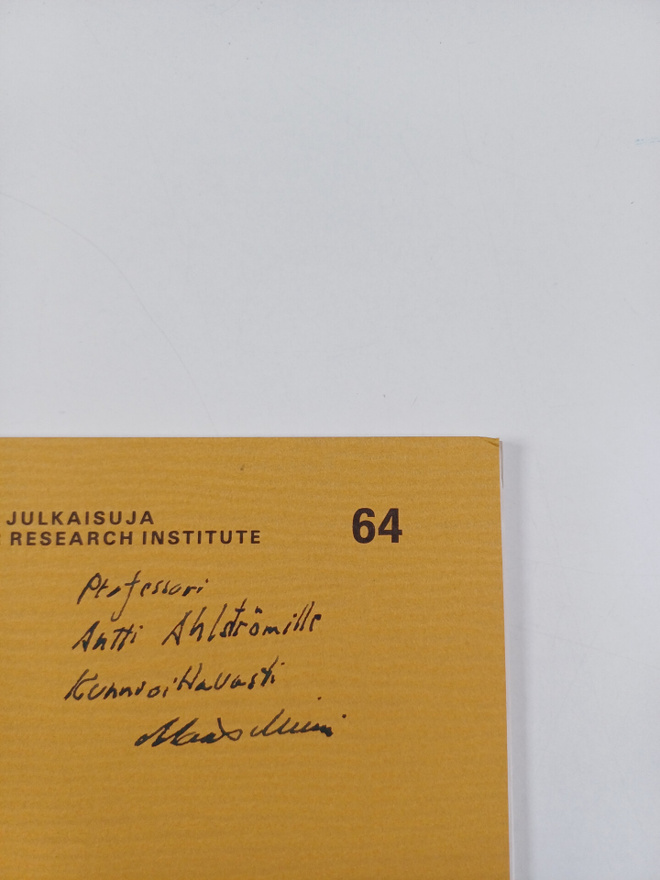 JULKAISUJA
RESEARCH INSTITUTE
64
Professori
Antti Ahlströmille
Kunnioittavasti